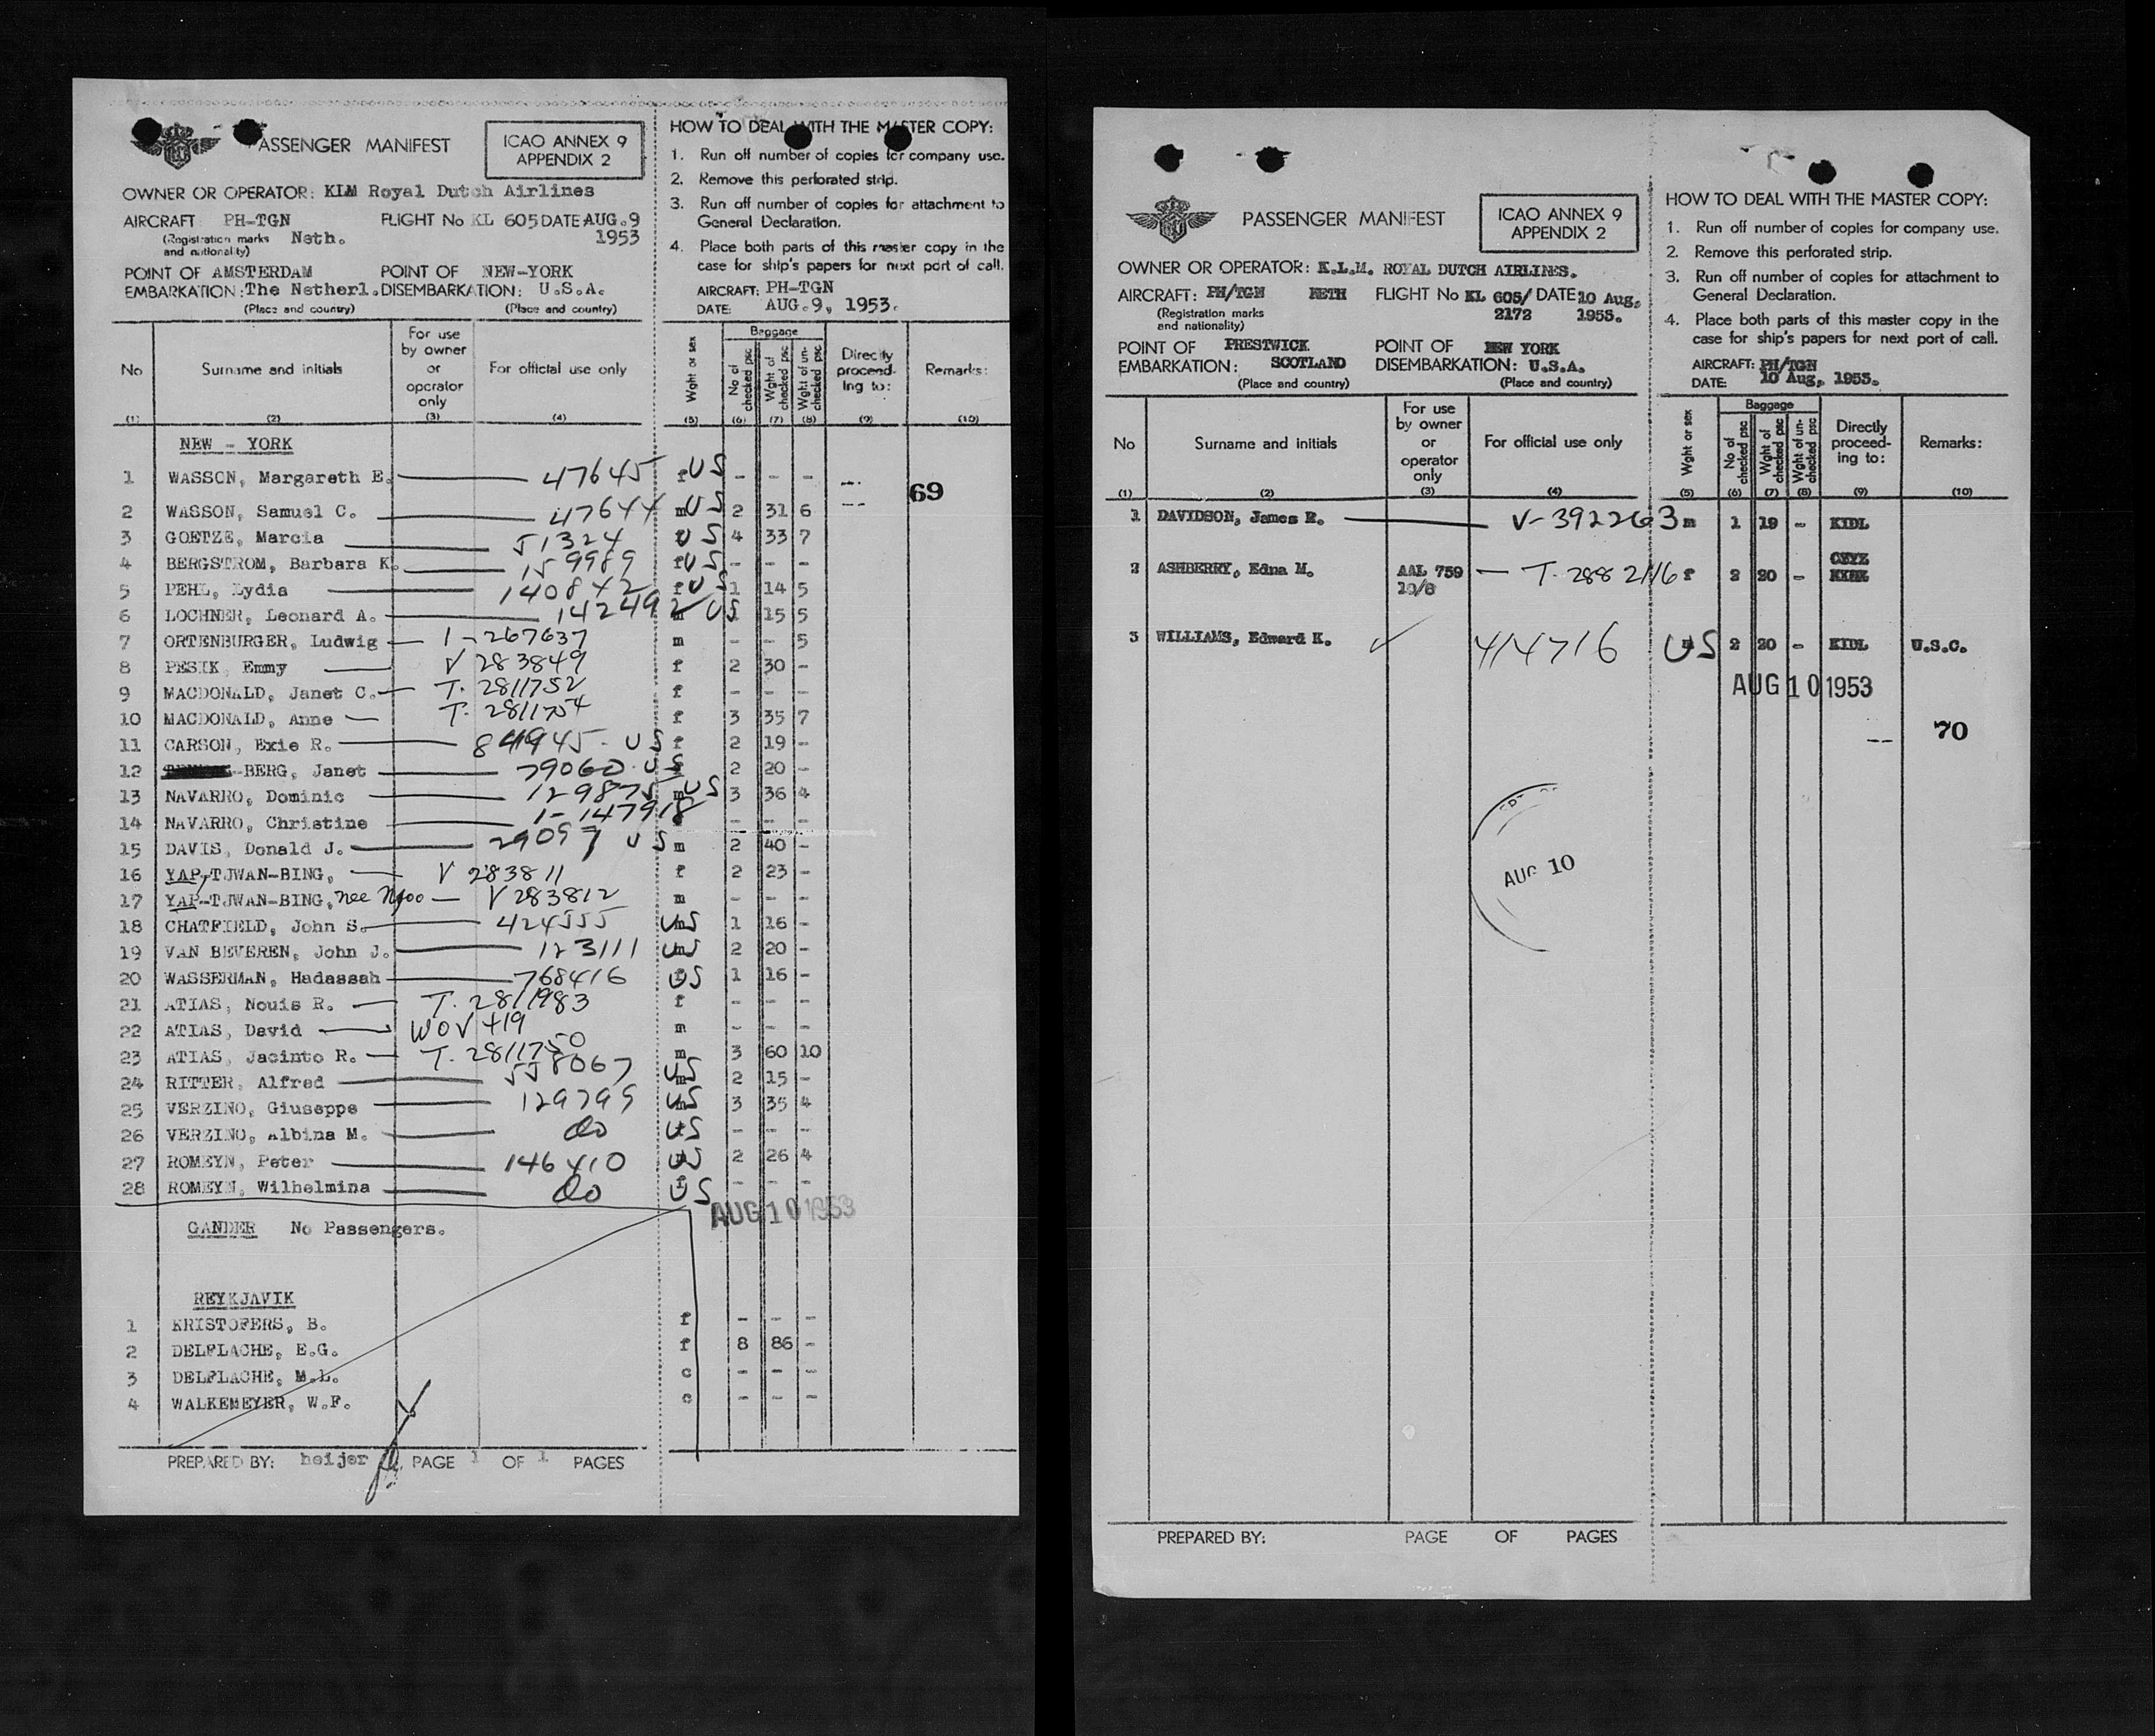 PASSENGER MANIFEST
ICAO ANNEX 9
APPENDIX 2
OWNER OR OPERATOR: KLM Royal Dutch Airlines
AIRCRAFT PH-TGN FLIGHT No KL 605 DATE AUG.9
(Registration marks Neth. 1953
and nationality)
POINT OF AMSTERDAM POINT OF NEW-YORK
EMBARKATION: The Netherl. DISEMBARKATION: U.S.A.
(Place and country) (Place and country)
HOW TO DEAL WITH THE MASTER COPY:
1. Run off number of copies for company use.
2. Remove this perforated strip.
3. Run off number of copies for attachment to
General Declaration.
4. Place both parts of this master copy in the
case for ship's papers for next port of call.
AIRCRAFT: PH-TGN
DATE: AUG.9, 1953.
No Surname and initials For use by owner or operator only For official use only Wght or sex Baggage No of checked psc Wght of checked psc Wght of un-checked psc Directly proceed-ing to: Remarks:
(1) (2) (3) (4) (5) (6) (7) (8) (9) (10)
NEW - YORK
1 WASSON, Margareth E. 47645 f US - - -
69
2 WASSON, Samuel C. 47644 m US 2 31 6
3 GOETZE, Marcia 51324 US 4 33 7
4 BERGSTROM, Barbara K. 159989 f US - - -
5 PEHL, Lydia 140842 f US 1 14 5
6 LOCHNER, Leonard A. 142492 US 1 15 5
7 ORTENBURGER, Ludwig 1-267637 m - - 5
8 PESIK, Emmy V 283849 f 2 30 -
9 MACDONALD, Janet C. T. 2811752 f - - -
10 MACDONALD, Anne T. 2811754 f 3 35 7
11 CARSON, Exie R. 84945 US f 2 19 -
12 -BERG, Janet 79060 US 2 20 -
13 NAVARRO, Dominic 129875 m US 3 36 4
14 NAVARRO, Christine 1-147918 - - -
15 DAVIS, Donald J. 29097 US m 2 40 -
16 YAP-TJWAN-BING, V 283811 f 2 23 -
17 YAP-TJWAN-BING, nee Njoo V 283812 m - - -
18 CHATFIELD, John S. 424555 US 1 16 -
19 VAN BEVEREN, John J. 123111 US 2 20 -
20 WASSERMAN, Hadassah 768416 US 1 16 -
21 ATIAS, Nouis R. T. 2811983 f - - -
22 ATIAS, David WOV 419 m - - -
23 ATIAS, Jacinto R. T. 2811750 m 3 60 10
24 RITTER, Alfred 558067 US 2 15 -
25 VERZINO, Giuseppe 129795 US 3 35 4
26 VERZINO, Albina M. do US - - -
27 ROMEYN, Peter 146410 US 2 26 4
28 ROMEYN, Wilhelmina do US - - -
AUG 10 1953
GANDER No Passengers.
REYKJAVIK
1 KRISTOFERS, B. f - - -
2 DELFLACHE, E.G. f 8 86 -
3 DELFLACHE, M.L. c - - -
4 WALKEMEYER, W.F. c - - -
PREPARED BY: heijer PAGE 1 OF 1 PAGES
PASSENGER MANIFEST
ICAO ANNEX 9
APPENDIX 2
OWNER OR OPERATOR: K.L.M. ROYAL DUTCH AIRLINES.
AIRCRAFT: PH/TGN NETH FLIGHT No KL 605/ DATE 10 Aug.
(Registration marks 2172 1953.
and nationality)
POINT OF PRESTWICK POINT OF NEW YORK
EMBARKATION: SCOTLAND DISEMBARKATION: U.S.A.
(Place and country) (Place and country)
HOW TO DEAL WITH THE MASTER COPY:
1. Run off number of copies for company use.
2. Remove this perforated strip.
3. Run off number of copies for attachment to
General Declaration.
4. Place both parts of this master copy in the
case for ship's papers for next port of call.
AIRCRAFT: PH/TGN
DATE: 10 Aug, 1953.
No Surname and initials For use by owner or operator only For official use only Wght or sex Baggage No of checked psc Wght of checked psc Wght of un-checked psc Directly proceed-ing to: Remarks:
(1) (2) (3) (4) (5) (6) (7) (8) (9) (10)
1 DAVIDSON, James R. V-392263 m 1 19 - KIDL
CEYZ
2 ASHBERRY, Edna M. AAL 759 T. 2882116 f 2 20 -
10/8
3 WILLIAMS, Edward K. 414716 US 2 20 - KIDL U.S.C.
AUG 10 1953
70
AUG 10
PREPARED BY: PAGE OF PAGES